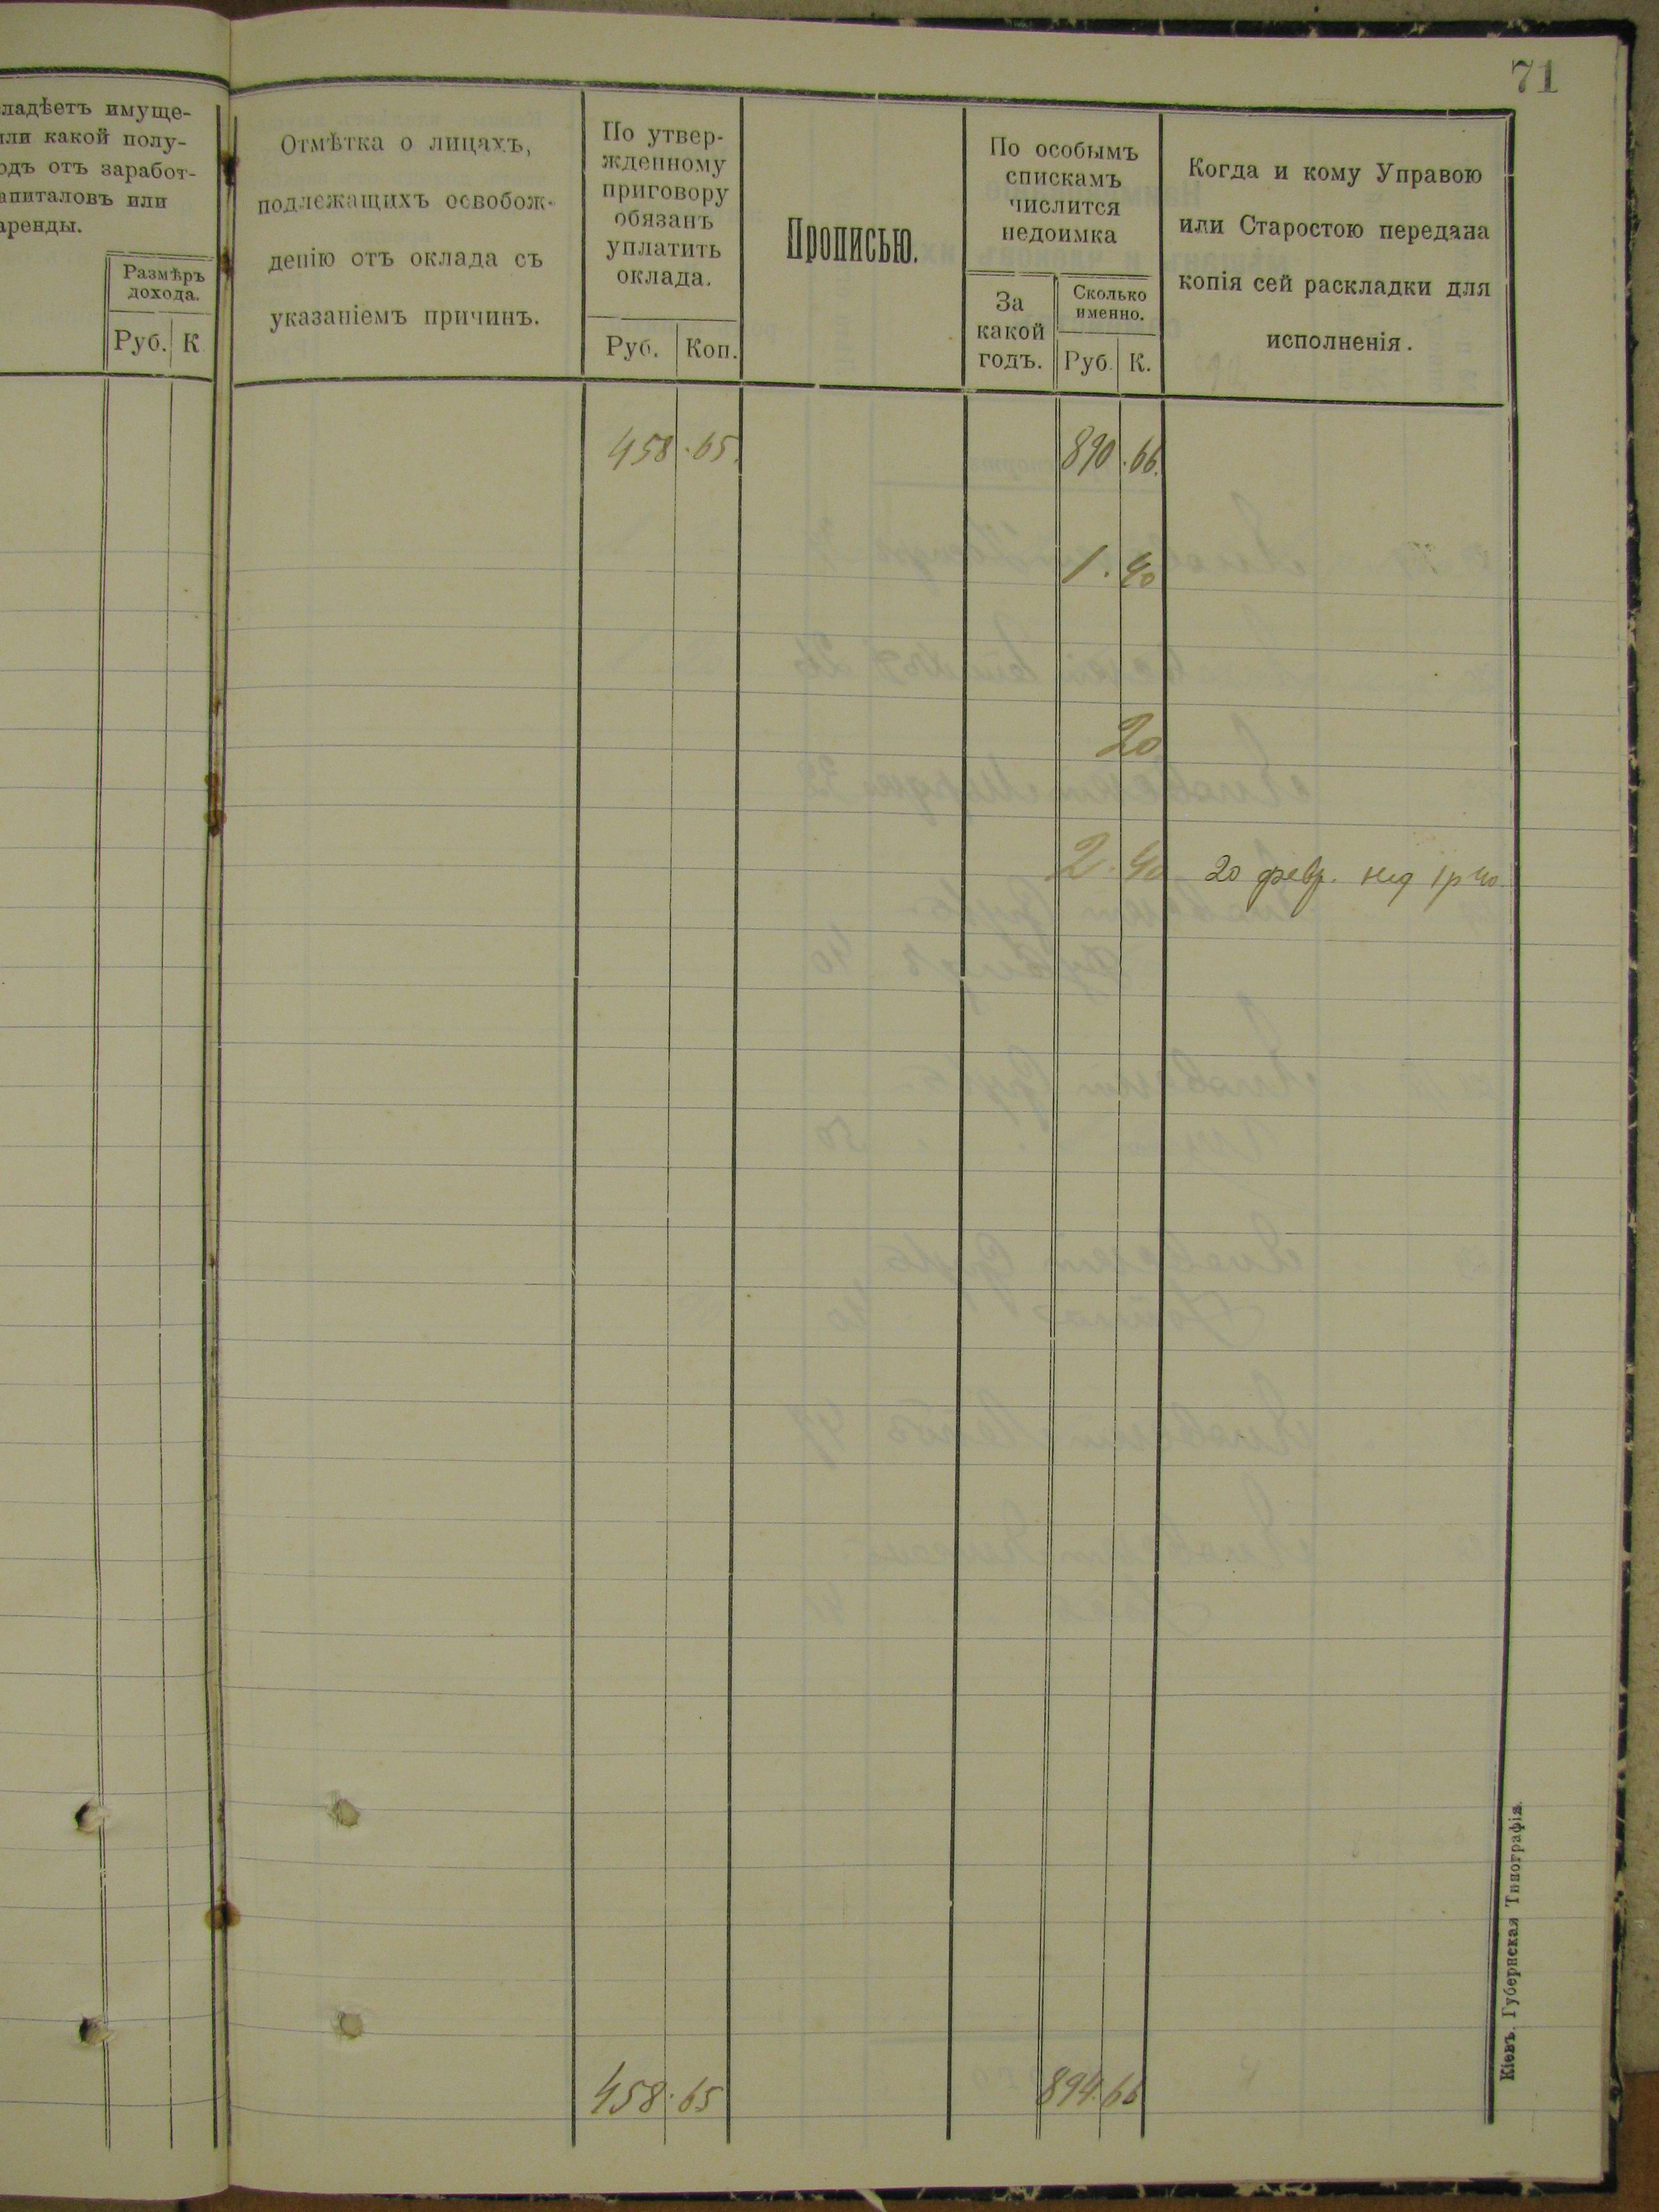 71
ладѣетъ имуще-
или какой полу-
одъ отъ заработ-
апиталовъ или
аренды.
Размѣръ
дохода.
Руб. К
Отмѣтка о лицахъ,
подлежащихъ освобож-
денію отъ оклада съ
указаніемъ причинъ.
По утвер-
жденному
приговору
обязанъ
уплатить
оклада.
Руб. Коп.
Прописью.
По особымъ
спискамъ
числится
недоимка
За
какой
годъ.
Сколько
именно.
Руб. К.
Когда и кому Управою
или Старостою передана
копія сей раскладки для
исполненія.
458.65. 890.66.
1.40
20
2.40 20 февр. нед 1р 40
458.65 894.66
Кіевъ. Губернская Типографія.